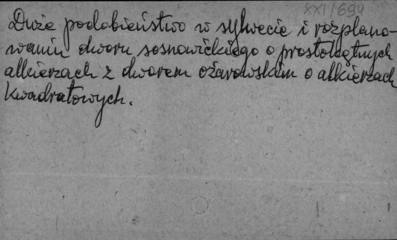 XXI/694
Duże podobieństwo w sylwecie i rozplano-
waniu dworu sosnowickiego o prostokątnych
alkierzach z dworem ożarowskim o alkierzach
kwadratowych.